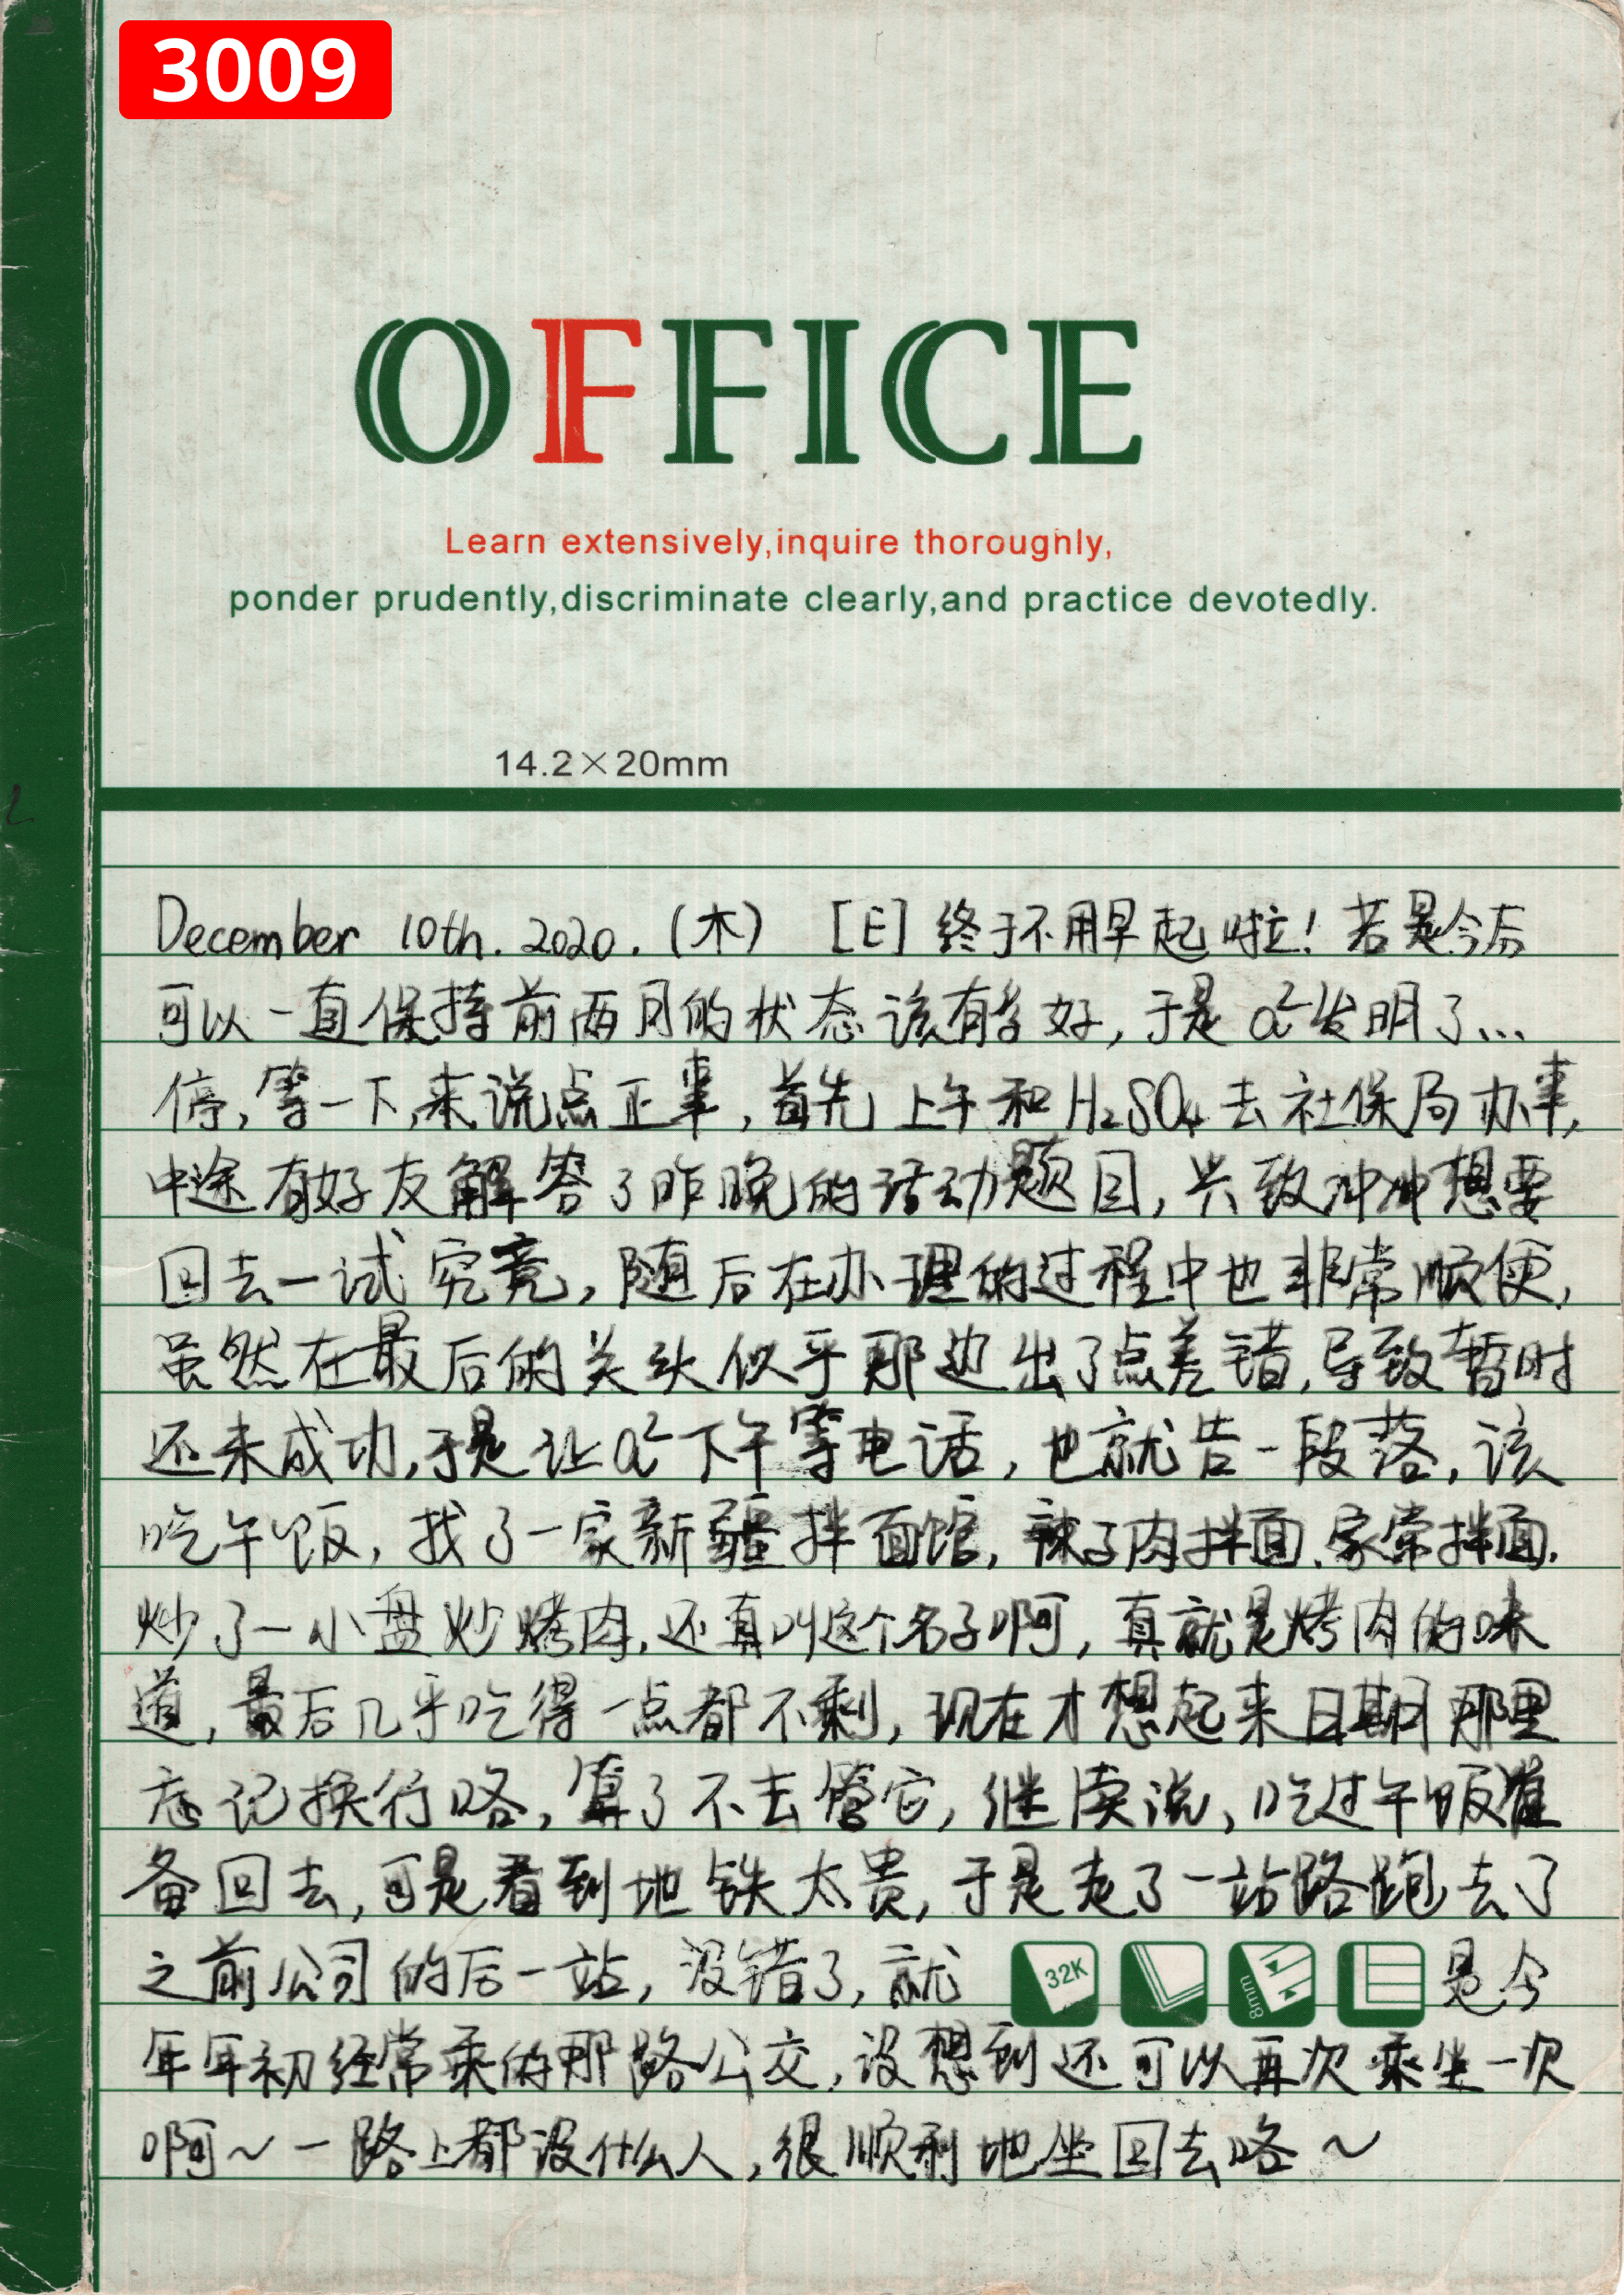 3009
OFFICE
Learn extensively,inquire thoroughly,
ponder prudently,discriminate clearly,and practice devotedly.
14.2×20mm
December 10th. 2020. (木) [E] 终于不用早起啦! 若是今后
可以一直保持前两月的状态该有多好, 于是 a² 发明了...
停, 等一下, 来说点正事, 首先上午和 H₂SO₄ 去社保局办事,
中途有好友解答了昨晚的活动题目, 兴致冲冲想要
回去一试究竟, 随后在办理的过程中也非常顺便,
虽然在最后的关头似乎那边出了点差错, 导致暂时
还未成功, 于是让 a² 下午等电话, 也就告一段落, 该
吃午饭, 找了一家新疆拌面馆, 辣子肉拌面、家常拌面.
炒了一小盘炒烤肉, 还真叫这个名子啊, 真就是烤肉的味
道, 最后几乎吃得一点都不剩, 现在才想起来日期那里
忘记换行咯, 算了不去管它, 继续说, 吃过午饭准
备回去, 可是看到地铁太贵, 于是走了一站路跑去了
之前公司的后一站, 没错了, 就 32K 8mm 是今
年年初经常乘的那路公交, 没想到还可以再次乘坐一次
啊~ 一路上都没什么人, 很顺利地坐回去咯~